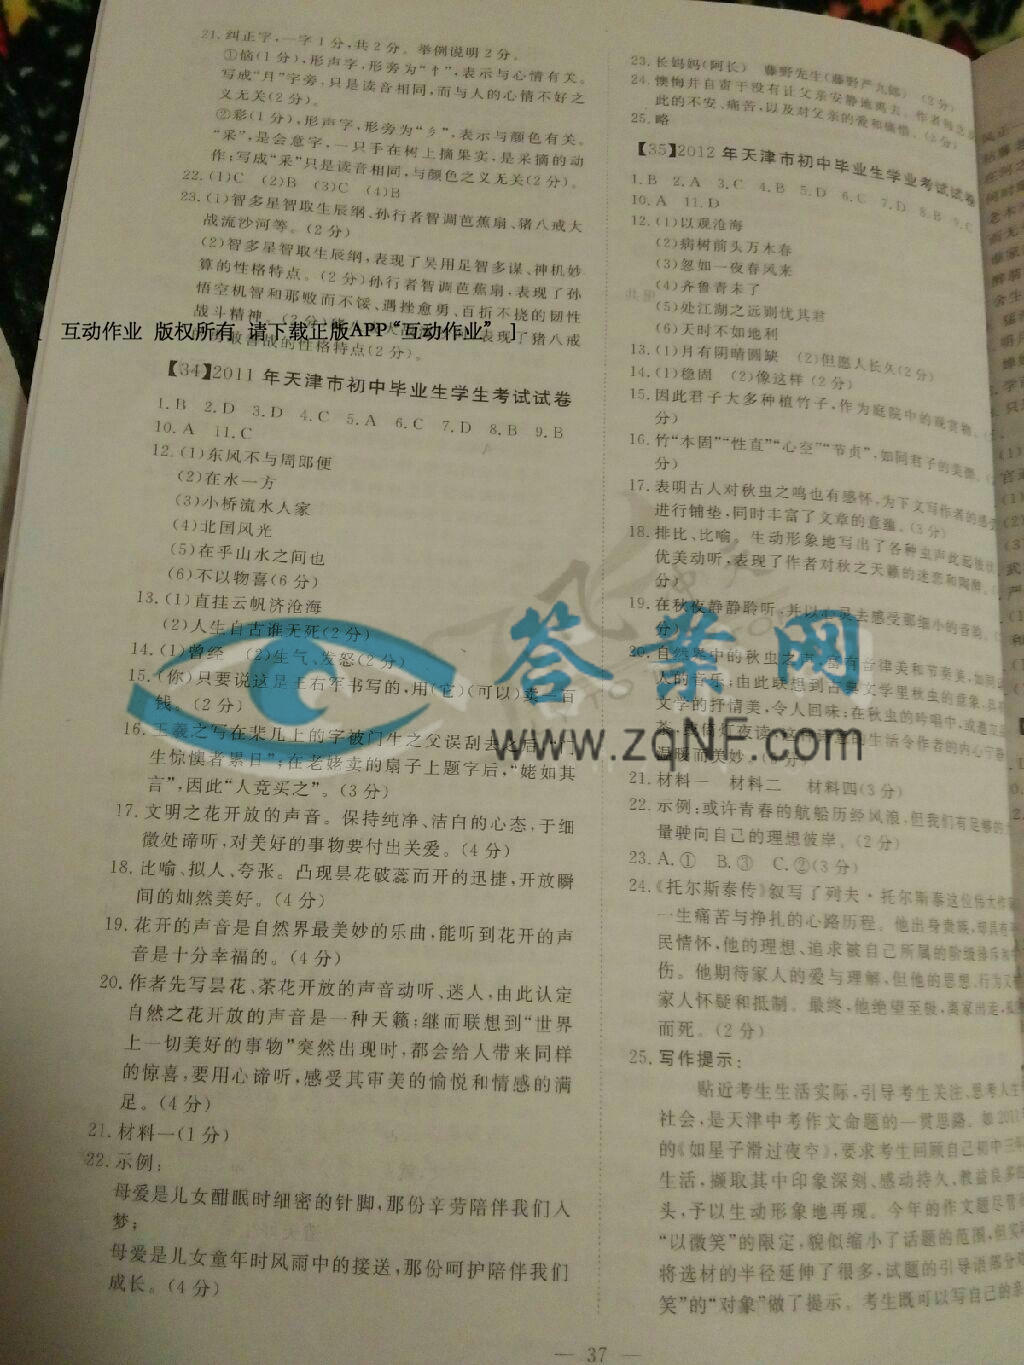 21.纠正字,一字1分,共2分。举例说明2分。
①恼(1分),形声字,形旁为“忄”,表示与心情有关。
写成“月”字旁,只是读音相同,而与人的心情不好之
义无关(2分)。
②彩(1分),形声字,形旁为“彡”,表示与颜色有关。
“采”,是会意字,一只手在树上摘果实,是采摘的动
作;写成“采”只是读音相同,与颜色之义无关(2分)。
22.(1)C (2)B (3)C (4)B
23.(1)智多星智取生辰纲、孙行者智调芭蕉扇、猪八戒大
战流沙河等。(2分)
(2)智多星智取生辰纲,表现了吴用足智多谋、神机妙
算的性格特点。(2分)孙行者智调芭蕉扇,表现了孙
悟空机智和那败而不馁、遇挫愈勇、百折不挠的韧性
战斗精神。
表现了猪八戒
战的性格特点(2分)。
[ 互动作业 版权所有 请下载正版APP“互动作业” ]
【34】2011年天津市初中毕业生学生考试试卷
1.B 2.D 3.D 4.C 5.A 6.C 7.D 8.B 9.B
10.A 11.C
12.(1)东风不与周郎便
(2)在水一方
(3)小桥流水人家
(4)北国风光
(5)在乎山水之间也
(6)不以物喜(6分)
13.(1)直挂云帆济沧海
(2)人生自古谁无死(2分)
14.(1)曾经 (2)生气、发怒(2分)
15.(你)只要说这是王右军书写的,用(它)(可以)卖一百
钱。(2分)
16.王羲之写在棐几上的字被门生之父误刮去之后“门
生惊懊者累日”;在老姥卖的扇子上题字后,“姥如其
言”,因此“人竞买之”。(3分)
17.文明之花开放的声音。保持纯净、洁白的心态,于细
微处谛听,对美好的事物要付出关爱。(4分)
18.比喻、拟人、夸张。凸现昙花破蕊而开的迅捷,开放瞬
间的灿然美好。(4分)
19.花开的声音是自然界最美妙的乐曲,能听到花开的声
音是十分幸福的。(4分)
20.作者先写昙花、茶花开放的声音动听、迷人,由此认定
自然之花开放的声音是一种天籁;继而联想到“世界
上一切美好的事物”突然出现时,都会给人带来同样
的惊喜,要用心谛听,感受其审美的愉悦和情感的满
足。(4分)
21.材料一(1分)
22.示例:
母爱是儿女酣眠时细密的针脚,那份辛劳陪伴我们入
梦;
母爱是儿女童年时风雨中的接送,那份呵护陪伴我们
成长。(4分)
23.长妈妈(阿长) 藤野先生(藤野严九郎) (2分)
24.懊悔并自责于没有让父亲安静地离去。作者
此的不安、痛苦,以及对父亲的爱和痛惜。
25.略
【35】2012年天津市初中毕业生学业考试试卷
1.B 2.A 3.C 4.B 5.D 6.C 7.D 8.B 9.C
10.A 11.D
12.(1)以观沧海
(2)病树前头万木春
(3)忽如一夜春风来
(4)齐鲁青未了
(5)处江湖之远则忧其君
(6)天时不如地利
13.(1)月有阴晴圆缺 (2)但愿人长久(2分)
14.(1)稳固 (2)像这样(2分)
15.因此君子大多种植竹子,作为庭院中的观赏物。
分)
16.竹“本固”“性直”“心空”“节贞”,如同君子的美德。
分)
17.表明古人对秋虫之鸣也有感怀,为下文写作者的感受
进行铺垫,同时丰富了文章的意蕴。(3分)
18.排比、比喻。生动形象地写出了各种虫声此起彼伏
优美动听,表现了作者对秋之天籁的迷恋和陶醉。
分)
19.在秋夜静静聆听,并以心灵去感受那细小的音韵。
分)
20.自然界中的秋虫之声,富有音律美和节奏美,如同
人的音乐;由此联想到古典文学里秋虫的意象,具有
文学的抒情美,令人回味;在秋虫的吟唱中,或
茶,或倚灯夜读,生活令作者的内心宁静
温暖而美妙。
答案网
www.zqNF.com
21.材料一 材料二 材料四(3分)
22.示例:或许青春的航船历经风浪,但我们有足够的
量驶向自己的理想彼岸。(2分)
23.A.① B.③ C.②(3分)
24.《托尔斯泰传》叙写了列夫·托尔斯泰这位伟大作家
一生痛苦与挣扎的心路历程。他出身贵族,却具有
民情怀,他的理想、追求被自己所属的阶级排斥和
伤。他期待家人的爱与理解,但他的思想、行为又
家人怀疑和抵制。最终,他绝望至极,离家出走,
而死。(2分)
25.写作提示:
贴近考生生活实际,引导考生关注、思考人生
社会,是天津中考作文命题的一贯思路。如2011
的《如星子滑过夜空》,要求考生回顾自己初中三年
生活,撷取其中印象深刻、感动持久、教益良多的
头,予以生动形象地再现。今年的作文题尽管有
“以微笑”的限定,貌似缩小了话题的范围,但实
将选材的半径延伸了很多,试题的引导语部分
笑”的“对象”做了提示。考生既可以写自己的亲
— 37 —